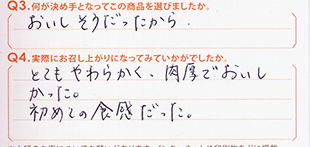 Q3.何が決め手となってこの商品を選びましたか。
おいしそうだったから.
Q4.実際にお召し上がりになってみていかがでしたか。
とてもやわらかく、肉厚でおいし
かった。
初めての食感だった。